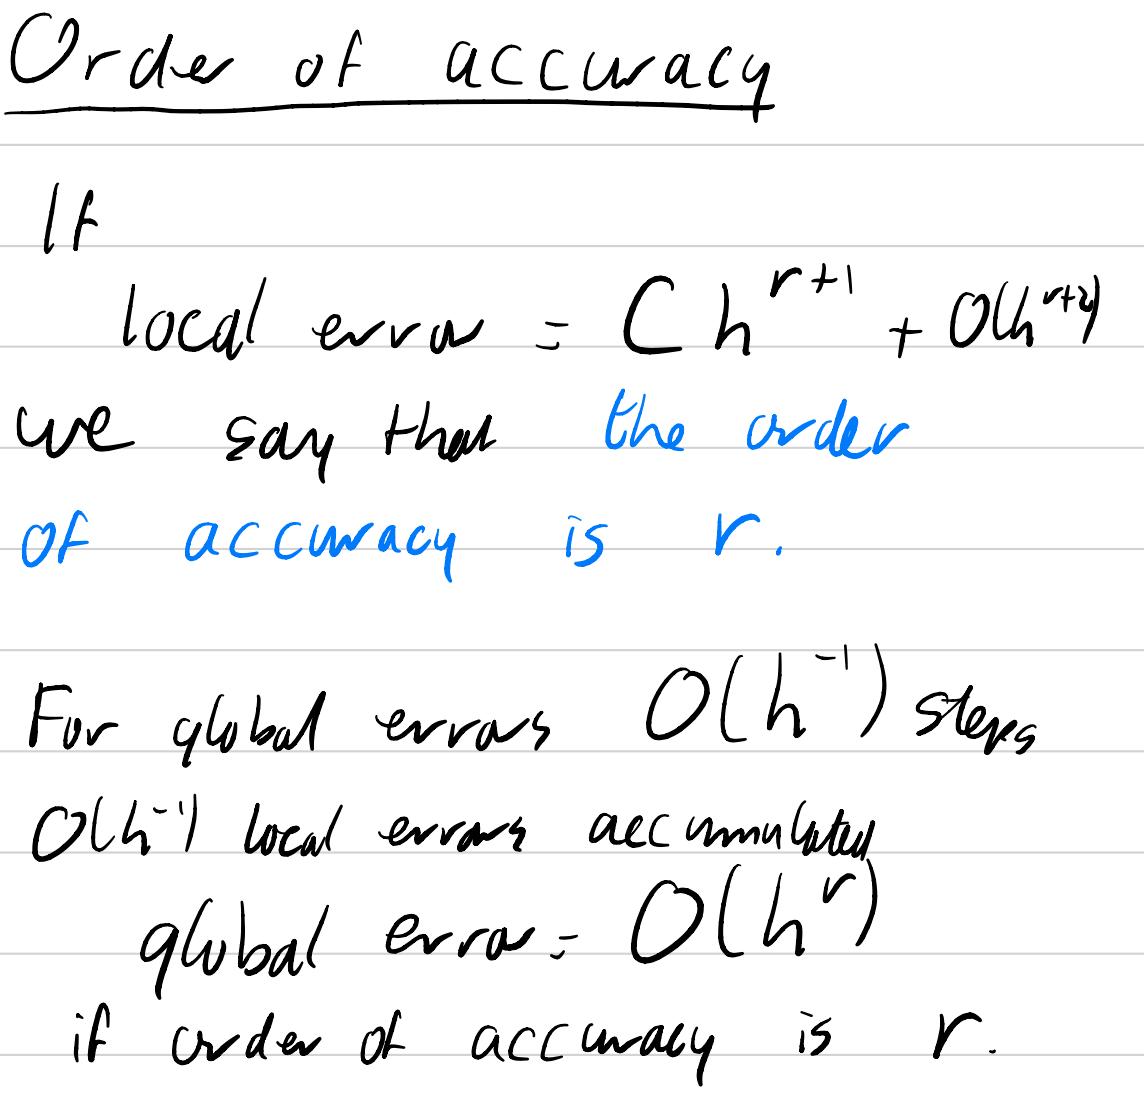 Order of accuracy
If
local error = Ch^{r+1} + O(h^{r+2})
we say that the order
of accuracy is r.
For global errors O(h^{-1}) steps
O(h^{-1}) local errors accumulated
global error = O(h^r)
if order of accuracy is r.